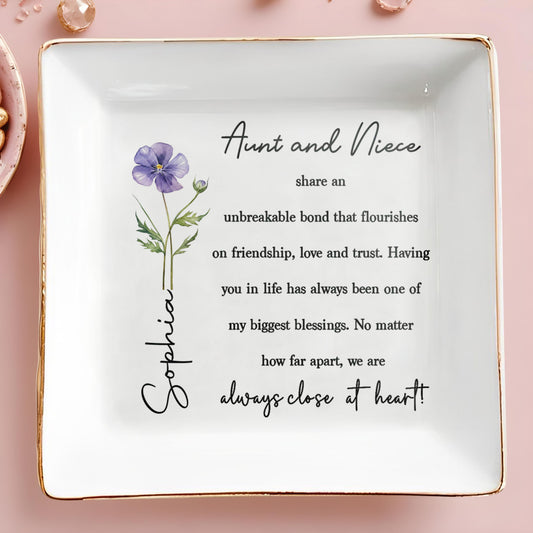 Aunt and Niece
share an
unbreakable bond that flourishes
on friendship, love and trust. Having
you in life has always been one of
my biggest blessings. No matter
how far apart, we are
always close at heart!
Sophia